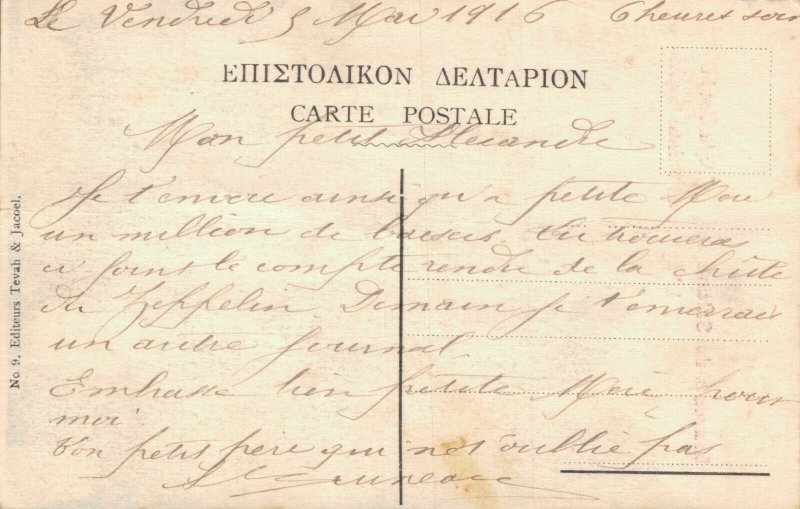 Le Vendredi 5 Mai 1916 6 heures soir
ΕΠΙΣΤΟΛΙΚΟΝ ΔΕΛΤΑΡΙΟΝ
CARTE POSTALE
Mon petit Alexandre
Je t'envoie ainsi qu'a petite
un million de baisers. Tu trouveras
ci joint le compte rendu de la chûte
du Zeppelin. Demain je t'enverrai
un autre journal
Embrasse bien petite pour
moi
Ton petit père qui ne t'oublie pas
No 9. Editeurs Tevah & Jacoel.